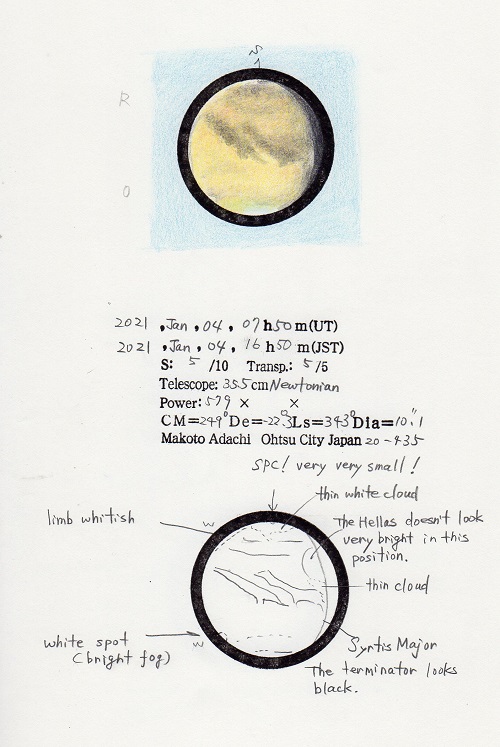 S
R
O
2021 , Jan , 04 , 07h50m(UT)
2021 , Jan , 04 , 16h50m(JST)
S: 5 /10 Transp.: 5 /5
Telescope: 355cm Newtonian
Power: 579 × ×
CM=249° De=-22.3° Ls=343° Dia=10".1
Makoto Adachi Ohtsu City Japan 20-435
SPC! very very small!
thin white cloud
limb whitish
W
The Hellas doesn't look
very bright in this
position.
thin cloud
white spot
(bright fog)
W
Syrtis Major
The terminator looks
black.